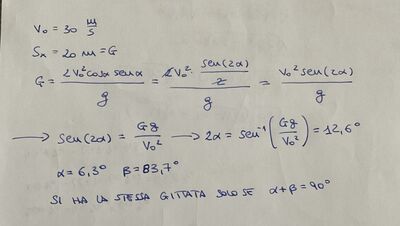 V₀ = 30 m/s
Sₓ = 20 m = G
G = 2V₀² cosα senα / g = 2V₀² · sen(2α)/2 / g = V₀² sen(2α) / g
→ sen(2α) = Gg / V₀² → 2α = sen⁻¹(Gg / V₀²) = 12,6°
α = 6,3° β = 83,7°
SI HA LA STESSA GITTATA SOLO SE α+β = 90°